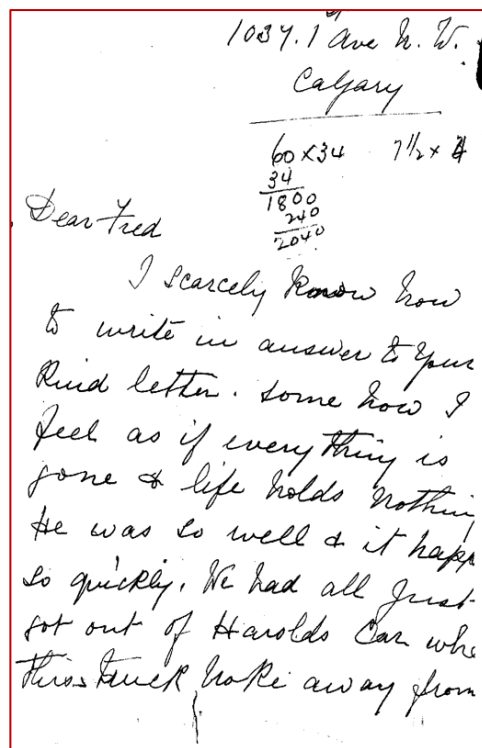 1037. 1st Ave N. W.
Calgary
60 x 34 7 1/2 x
34
1800
240
2040
Dear Fred
I scarcely know how
to write in answer to your
Kind letter. Some how I
feel as if everything is
gone & life holds nothin
He was so well & it happ
so quickly. We had all just
got out of Harolds Car whe
this truck broke away from